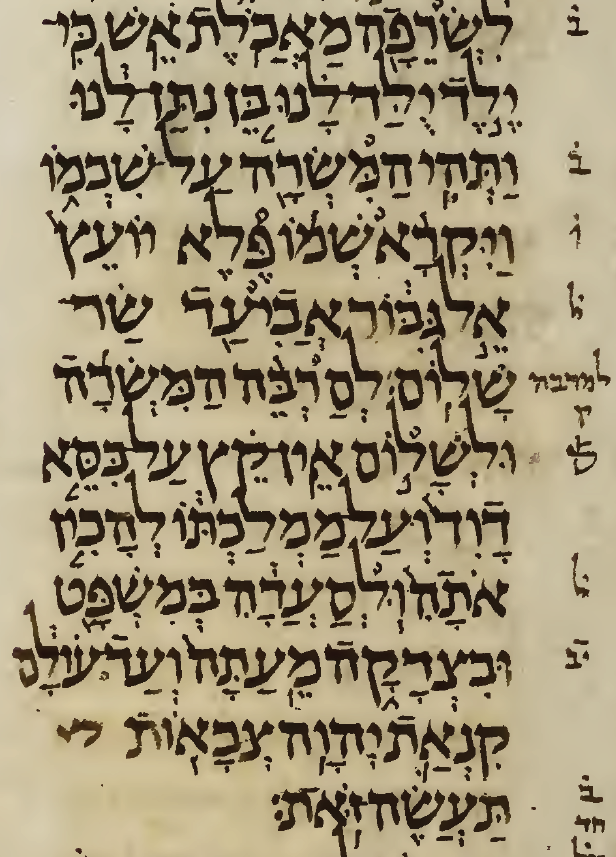 לִשְׂרֵפָה מַאֲכֹלֶת אֵשׁ כִּי ב
יֶלֶד יֻלַּד לָנוּ בֵּן נִתַּן לָנוּ
וַתְּהִי הַמִּשְׂרָה עַל שִׁכְמוֹ ב
וַיִּקְרָא שְׁמוֹ פֶּלֶא יוֹעֵץ
אֵל גִּבּוֹר אֲבִיעַד שַׂר ל
שָׁלוֹם׃ לְםַרְבֵּה הַמִּשְׂרָה למרבה ק
וּלְשָׁלוֹם אֵין קֵץ עַל כִּסֵּא
דָוִד וְעַל מַמְלַכְתּוֹ לְהָכִין
אֹתָהּ וּלְסַעֲדָהּ בְּמִשְׁפָּט ל
וּבִצְדָקָה מֵעַתָּה וְעַד עוֹלָם יב
קִנְאַת יְהוָה צְבָאוֹת
תַּעֲשֶׂה זֹּאת׃ ב